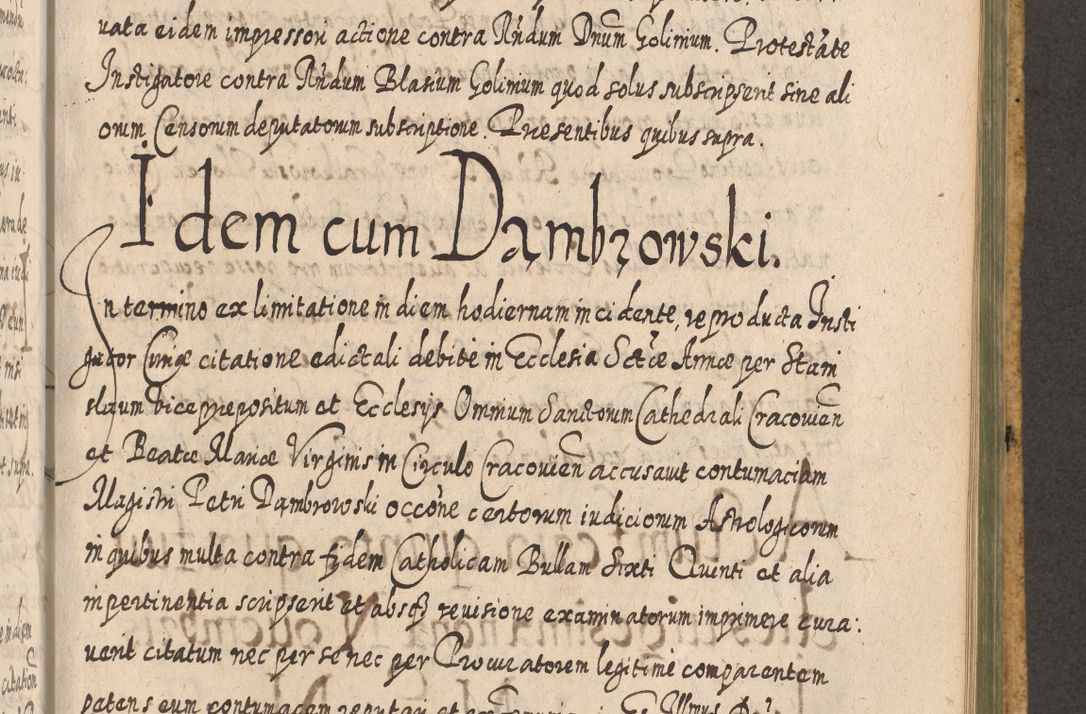 vata eidem impressori actione contra Rńdum Dnum Golinium. Protestate
Instigatore contra Rńdum Blasium Golinium quod solus subscripserit sine ali
orum Censorum deputatorum subscriptione. Presentibus quibus supra.
Idem cum Dąmbrowski.
In termino ex limitatione in diem hodiernam incidente, reproducta Insti
gator Curiæ citatione edictali debite in Ecclesia Sctæ Annæ per Stani
slaum vice prepositum et Ecclesijs Omnium Sanctorum Cathedrali Cracovien
et Beatæ Mariæ Virginis in Circulo Cracovien accusavit contumaciam
Magistri Petri Dąmbrowski occone certorum iudiciorum Astrologicorum
in quibus multa contra fidem Catholicam Bullam Sixti Quinti et alia
inpertinentia scripserit et absq revisione examinatorum imprimere cura:
verit citatum nec per se nec per Procuratorem legitime comparentem
petens eum contumacem reputari et Illmus